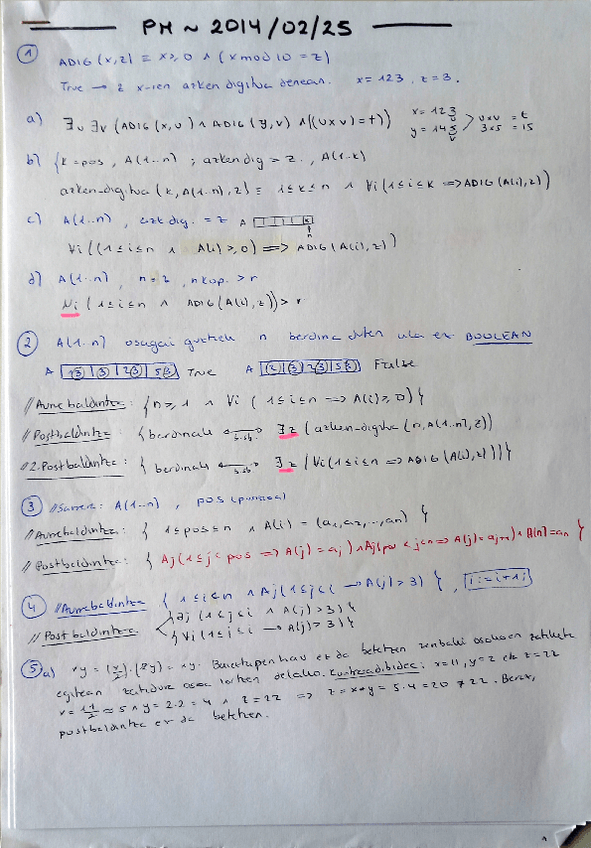 PM ~ 2014/02/25
① ADIG (x,z) ≡ x≥0 ∧ (x mod 10 = z)
True → z x-ren azken digitua denean. x = 123, z = 3.
a) ∃u ∃v (ADIG (x,u) ∧ ADIG (y,v) ∧ ((u×v) = t)) x = 123 y = 145 u×v = t 3×5 = 15
b) { k = pos, A(1..n) ; azken dig = z., A(1..k)
azken-digitua (k, A(1..n), z) ≡ 1≤k≤n ∧ ∀i (1≤i≤k => ADIG (A(i), z))
c) A(1..n), azk dig. = z A n
∀i ((1≤i≤n ∧ A(i)≥0) => ADIG (A(i), z))
d) A(1..n), n = z, n kop. > r
Ni (1≤i≤n ∧ ADIG (A(i), z)) > r
② A(1..n) osagai guztiek n berdina duten ala ez BOOLEAN
A 13 | 3 | 23 | 53 True A 12 | 3 | 23 | 53 False
//Aurrebaldintza: { n≥1 ∧ ∀i (1≤i≤n => A(i)≥0) }
//Postbaldintza: { berdinak <-> ∃z (azken-digitua (n, A(1..n), z))
//2.Postbaldintza: { berdinak <-> ∃z (∀i (1≤i≤n => ADIG (A(i), z))) }
③ //Sarrera: A(1..n), pos
//Aurrebaldintza: { 1≤pos≤n ∧ A(i) = (a1, a2, .., an) }
//Postbaldintza: { ∀j (1≤j<pos => A(j) = aj) ∧ ∀j (pos<j<n => A(j) = aj+1) ∧ A(n) = an }
④ //Aurrebaldintza { 1≤i<n ∧ ∀j (1≤j<i → A(j)>3) }, i := i+1;
//Postbaldintza { ∃j (1≤j≤i ∧ A(j)>3) }
{ ∀j (1≤j<i → A(j)>3) }
⑤ a) xy = (x/2)·(2y) = xy. Baieztapen hau ez da betetzen zenbaki osoen zatiketa
egitean zatidura osoa lortzen delako. Kontraadibidea: x=11, y=2 eta z=22
x = 11/2 ≈ 5 ∧ y = 2·2 = 4 ∧ z = 22 => z = x*y = 5·4 = 20 ≠ 22. Beraz,
postbaldintza ez da betetzen.
1